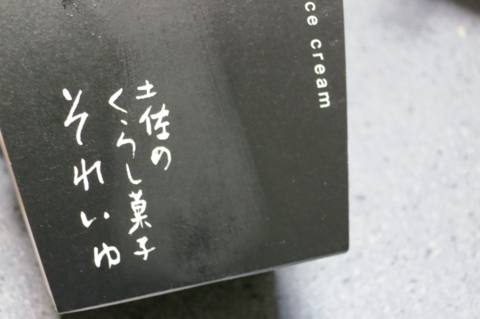 ice cream
土佐の
くらし菓子
それいゆ